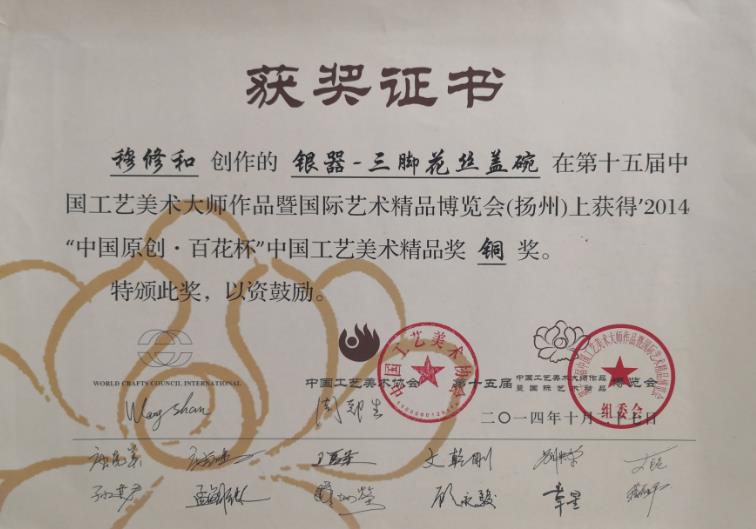 获奖证书
穆修和 创作的 银器-三脚花丝盖碗 在第十五届中
国工艺美术大师作品暨国际艺术精品博览会(扬州)上获得'2014
“中国原创·百花杯”中国工艺美术精品奖 铜 奖。
特颁此奖，以资鼓励。
WORLD CRAFTS COUNCIL INTERNATIONAL
中国工艺美术协会
中国工艺美术协会
第十五届 中国工艺美术大师作品暨国际艺术精品 博览会
组委会
Wang Shan
二〇一四年十月二十七日